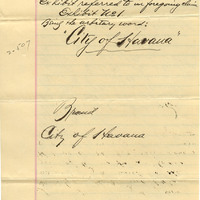 Exhibit referred to in foregoing claim
Exhibit No 1
Being the arbitrary word:
"City of Havana"
2-507
Brand
City of Havana